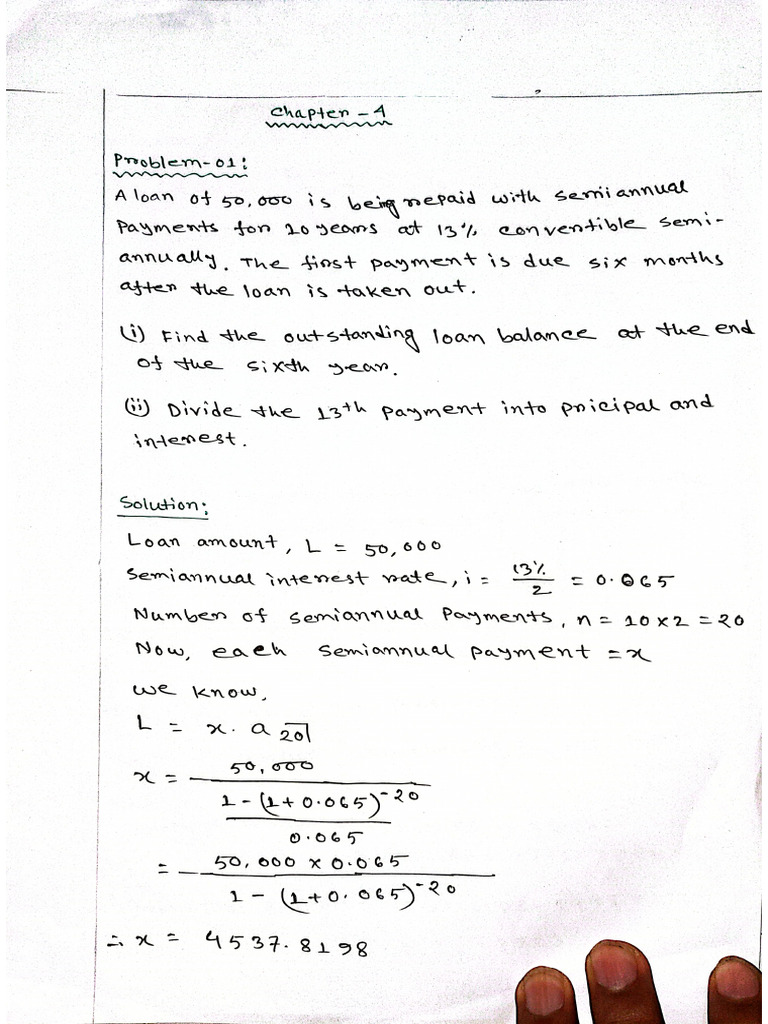 Chapter - 4
Problem-01:
A loan of 50,000 is being repaid with semiannual
payments for 10 years at 13% convertible semi-
annually. The first payment is due six months
after the loan is taken out.
(i) Find the outstanding loan balance at the end
of the sixth year.
(ii) Divide the 13th payment into pricipal and
interest.
Solution:
Loan amount, L = 50,000
Semiannual interest rate, i = 13%/2 = 0.065
Number of semiannual payments, n = 10 × 2 = 20
Now, each semiannual payment = x
we know,
L = x. a 20̅|
x = 50,000 / ((1 - (1+0.065)^-20) / 0.065)
= 50,000 × 0.065 / (1 - (1+0.065)^-20)
∴ x = 4537.8198